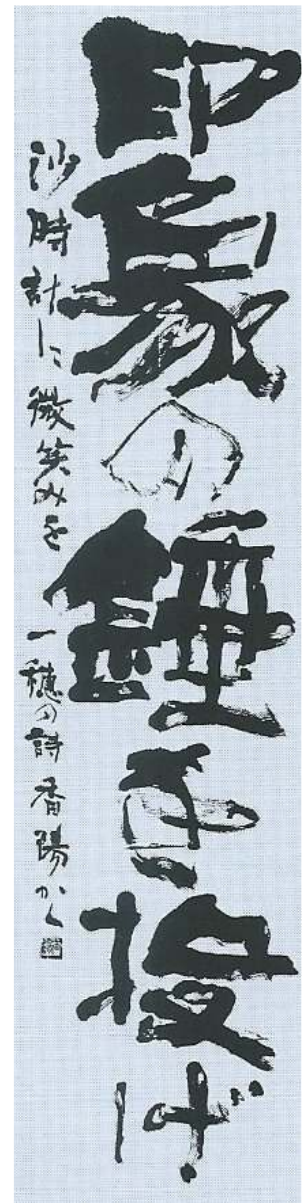 印象の錘を投げ
沙時計に微笑みを 一穂の詩 香陽かく